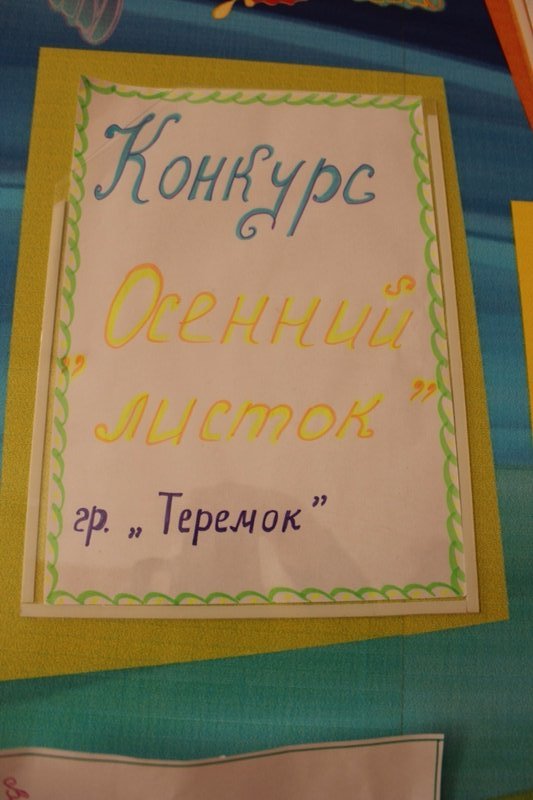 Конкурс
Осенний
„листок”
гр. „Теремок”